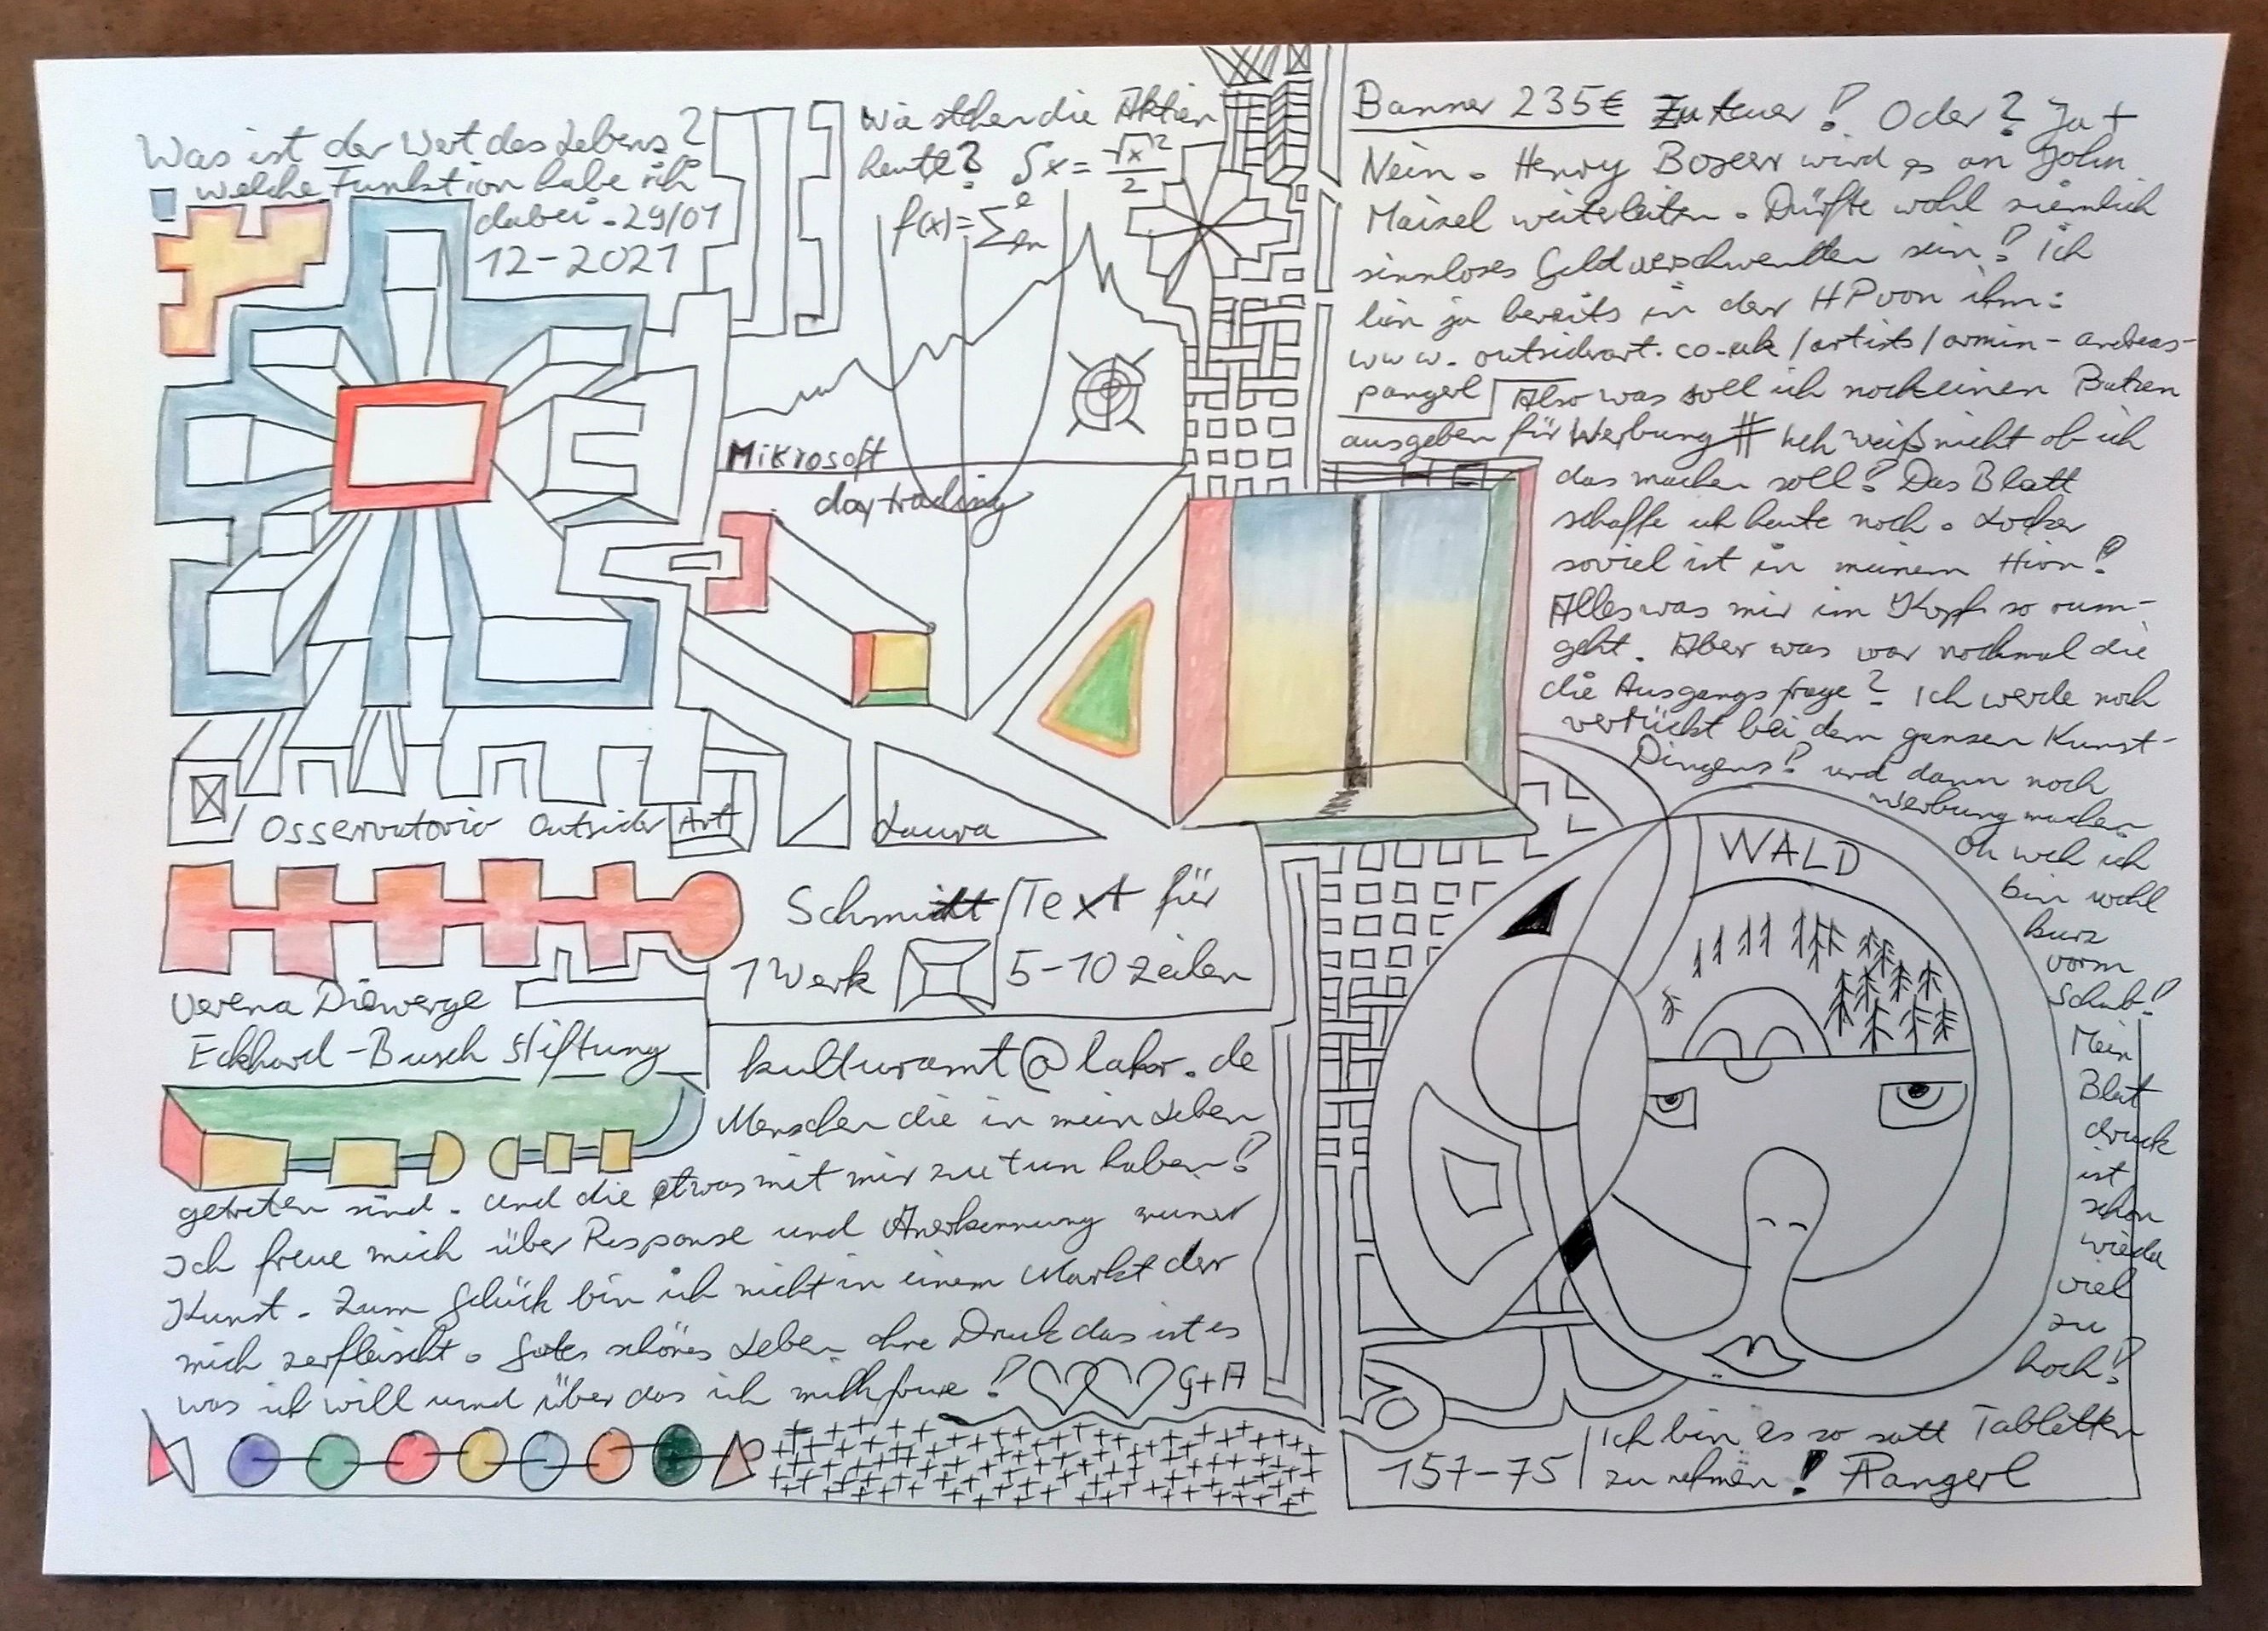 Was ist der Wert des Lebens?
welche Funktion habe ich
dabei. 29/01
12-2021
Wie stehen die Aktien
heute? Sx = √x²/2
f(x)=Σ
Mikrosoft
daytrading
Osservatorio Outsider Art
Laura
Verena Diewerge
Eckhard-Busch Stiftung
Schmidt / Text für
1 Werk 5-10 Zeilen
kulturamt@lahr.de
Menschen die in mein Leben
getreten sind. und die etwas mit mir zu tun haben?
Ich freue mich über Response und Anerkennung meiner
Kunst. Zum Glück bin ich nicht in einem Markt der
mich zerfleischt. Gutes schönes Leben ohne Druck das ist es
was ich will und über das ich mich freue! G+A
Banner 235€ Zu teuer! Oder? Ja +
Nein. Henry Boxer wird es an John
Maisel weiterleiten. Dürfte wohl ziemlich
sinnloses Geldverschwenden sein? ich
bin ja bereits in der HP von ihm:
www.outsiderart.co.uk/artists/armin-andreas-
pangerl Also was soll ich noch einen Batzen
ausgeben für Werbung # Ich weiß nicht ob ich
das machen soll? Das Blatt
schaffe ich heute noch. Locker
soviel ist in meinem Hirn?
Alles was mir im Kopf so rum-
geht. Aber was war nochmal die
die Ausgangsfrage? Ich werde noch
verrückt bei dem ganzen Kunst-
Dingens? und dann noch
Werbung machen
Oh weh ich
bin wohl
kurz
vorm
Schub?
Mein
Blut
druck
ist
schon
wieder
viel
zu
hoch?
WALD
157-75 Ich bin es so satt Tabletten
zu nehmen! APangerl